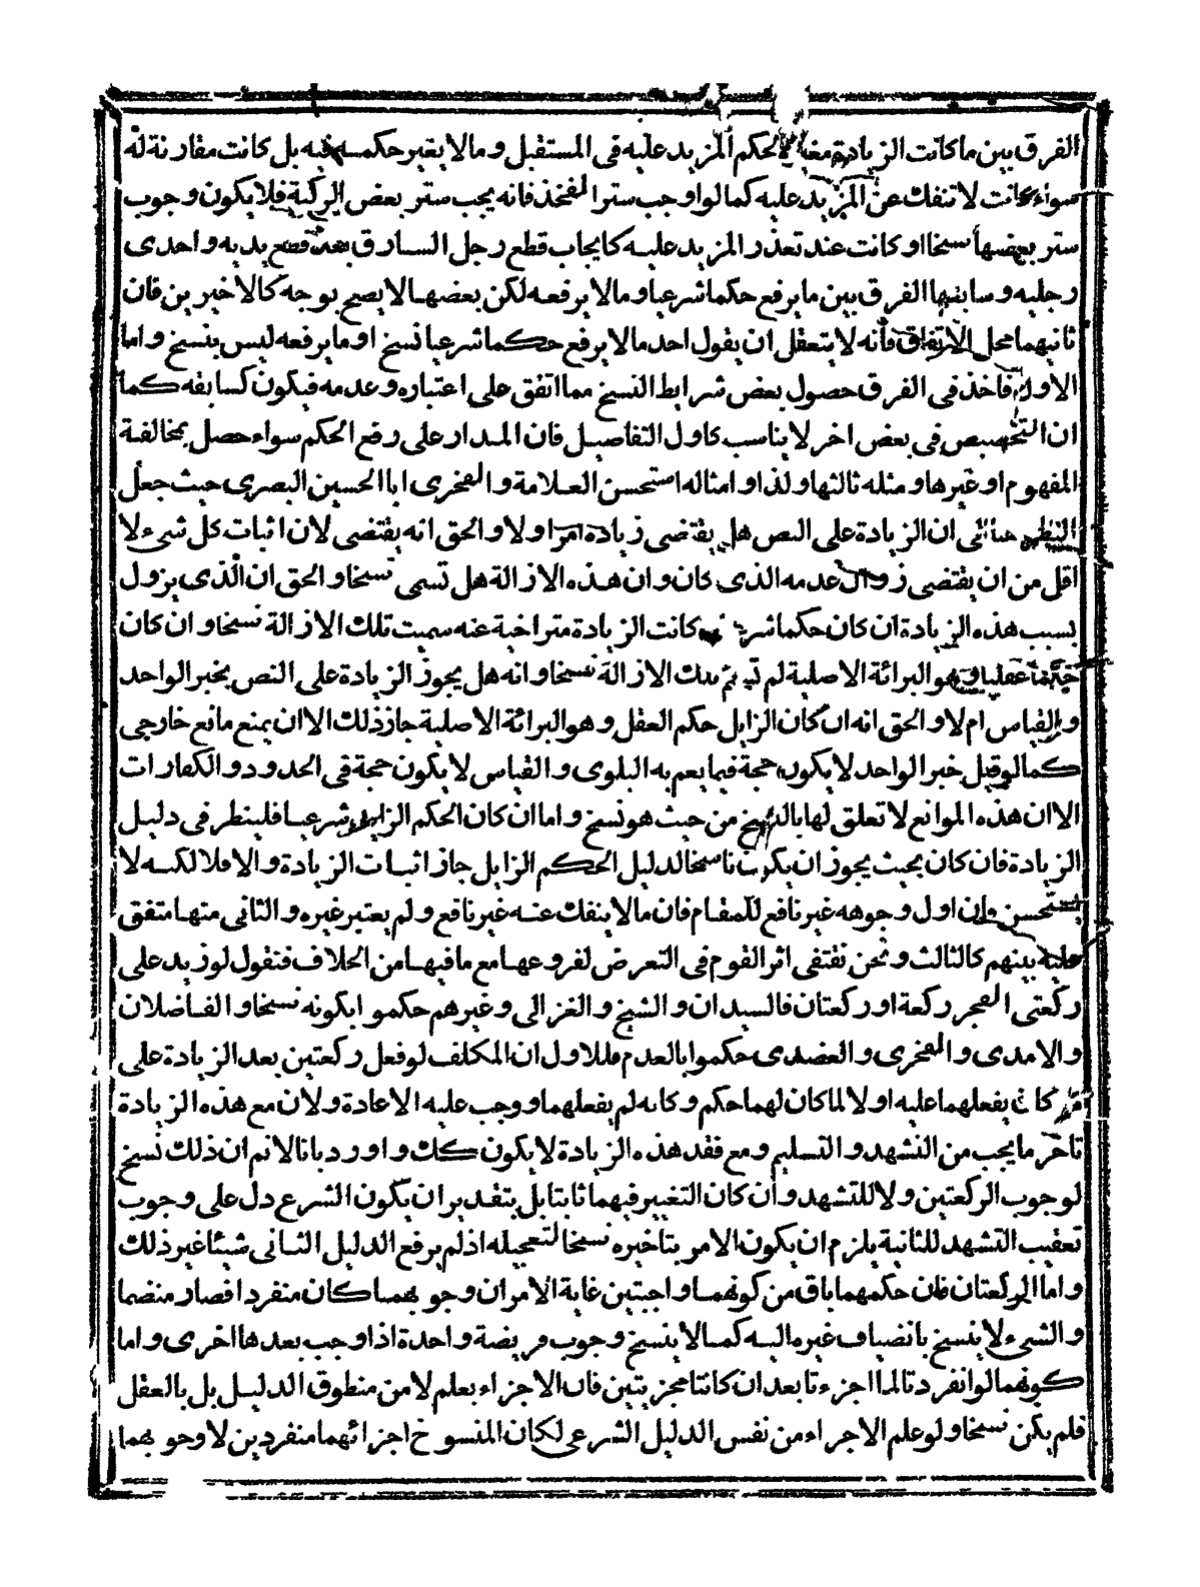 الفرق بين ما كانت الزيادة مغيرة لحكم المزيد عليه فى المستقبل وما لا يغير حكمه فيه بل كانت مقارنة له
سواء كانت لا تنفك عن المزيد عليه كما لو اوجب ستر الفخذ فانه يجب ستر بعض الركبة فلا يكون وجوب
ستر بعضها نسخا او كانت عند تعذر المزيد عليه كايجاب قطع رجل السارق بعد قطع يديه واحدى
رجليه وسابعها الفرق بين ما يرفع حكما شرعيا وما لا يرفعه لكن بعضها لا يصح بوجه كالأخيرين فان
ثانيهما محل الاتفاق فأنه لا يتعقل ان يقول احد ما لا يرفع حكما شرعيا نسخ او ما يرفعه ليس بنسخ واما
الاول فاخذ فى الفرق حصول بعض شرايط النسخ مما اتفق على اعتباره وعدمه فيكون كسابقه كما
ان التخصيص فى بعض اخر لا يناسب كاول التفاصيل فان المدار على رفع الحكم سواء حصل بمخالفة
المفهوم او غيرها ومثله ثالثها ولذا وامثاله استحسن العلامة والفخرى ابا الحسين البصرى حيث جعل
النظر هنا فى ان الزيادة على النص هل يقتضى زيادة امر اولا والحق انه يقتضى لان اثبات كل شىء لا
اقل من ان يقتضى زوال عدمه الذى كان وان هذه الازالة هل تسمى نسخا والحق ان الذى يزول
بسبب هذه الزيادة ان كان حكما شرعيا كانت الزيادة متراخية عنه سميت تلك الازالة نسخا وان كان
حكما عقليا وهو البرائة الاصلية لم تسم تلك الازالة نسخا وانه هل يجوز الزيادة على النص بخبر الواحد
والقياس ام لا والحق انه ان كان الزايل حكم العقل وهو البرائة الاصلية جاز ذلك الا ان يمنع مانع خارجى
كما لو قيل خبر الواحد لا يكون حجة فيما يعم به البلوى والقياس لا يكون حجة فى الحدود والكفارات
الا ان هذه الموانع لا تعلق لها بالنسخ من حيث هو نسخ واما ان كان الحكم الزايل شرعيا فلينظر فى دليل
الزيادة فان كان بحيث يجوز ان يكون ناسخا لدليل الحكم الزايل جاز اثبات الزيادة والا فلا لكنه لا
يستحسن فان اول وجوهه غير نافع للمقام فان ما لا ينفك عنه غير نافع ولم يعتبر غيره والثانى منها متفق
عليه بينهم كالثالث ونحن نقتفى اثر القوم فى التعرض لفروعها مع ما فيها من الخلاف فنقول لو زيد على
ركعتى الفجر ركعة او ركعتان فالسيدان والشيخ والغزالى وغيرهم حكموا بكونه نسخا والفاضلان
والامدى والفخرى والعضدى حكموا بالعدم فللاول ان المكلف لو فعل ركعتين بعد الزيادة على
ما كان يفعلهما عليه اولا لما كان لهما حكم وكانه لم يفعلهما ووجب عليه الاعادة ولان مع هذه الزيادة
تاخر ما يجب من التشهد والتسليم ومع فقد هذه الزيادة لا يكون كك واورد بانا لا نم ان ذلك نسخ
لوجوب الركعتين ولا للتشهد وأن كان التغيير فيهما ثابتا بل بتقدير ان يكون الشرع دل على وجوب
تعقيب التشهد للثانية يلزم ان يكون الامر بتاخيره نسخا لتعجيله اذ لم يرفع الدليل الثانى شيئا غير ذلك
واما الركعتان فان حكمهما باق من كونهما واجبتين غاية الامر ان وجوبهما كان منفردا فصار منضما
والشىء لا ينسخ بانضياف غيره اليه كما لا ينسخ وجوب فريضة واحدة اذا وجب بعدها اخرى واما
كونهما لو انفردتا لما اجزءتا بعد ان كانتا مجزيتين فان الاجزاء يعلم لا من منطوق الدليل بل بالعقل
فلم يكن نسخا ولو علم الاجزاء من نفس الدليل الشرعى لكان المنسوخ اجزائهما منفردين لا وجوبهما